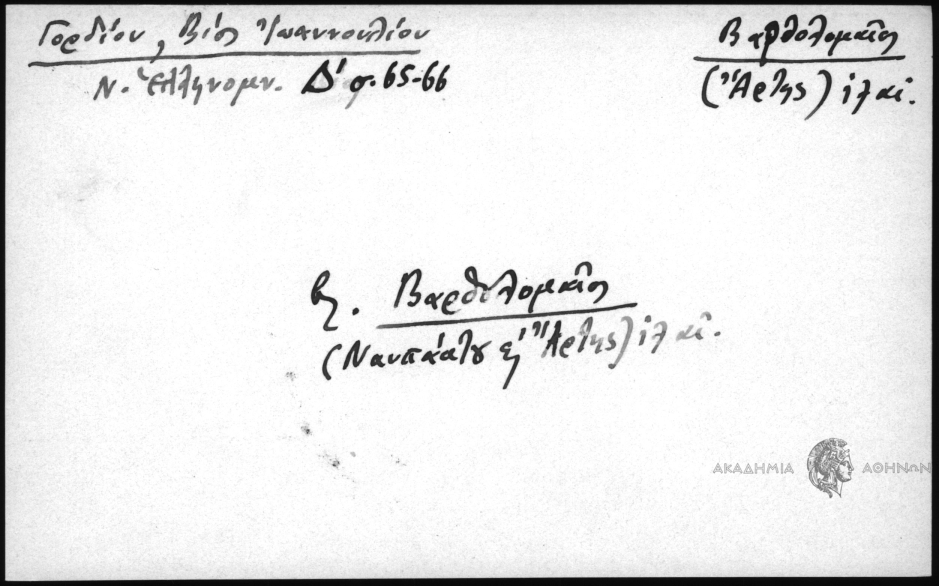 Γορδίου, Βίος Ἰωαννουλίου
Ν. Ἑλληνομν. Δ΄ σ. 65-66
Βαρθολομαῖος
(Ἄρτης) ιζ αἰ.
βλ. Βαρθολομαῖος
(Ναυπάκτου & Ἄρτης) ιζ αἰ.
ΑΚΑΔΗΜΙΑ ΑΘΗΝΩΝ